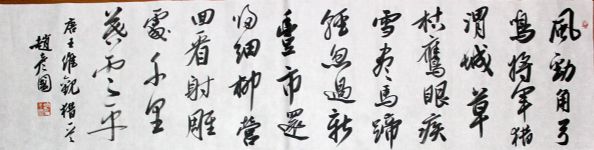 風勁角弓
鳴將軍猎
渭城草
枯鷹眼疾
雪盡馬蹄
輕忽過新
豐市還
歸細柳營
回看射雕
處千里
暮云平
唐王維觀猎
趙彦國